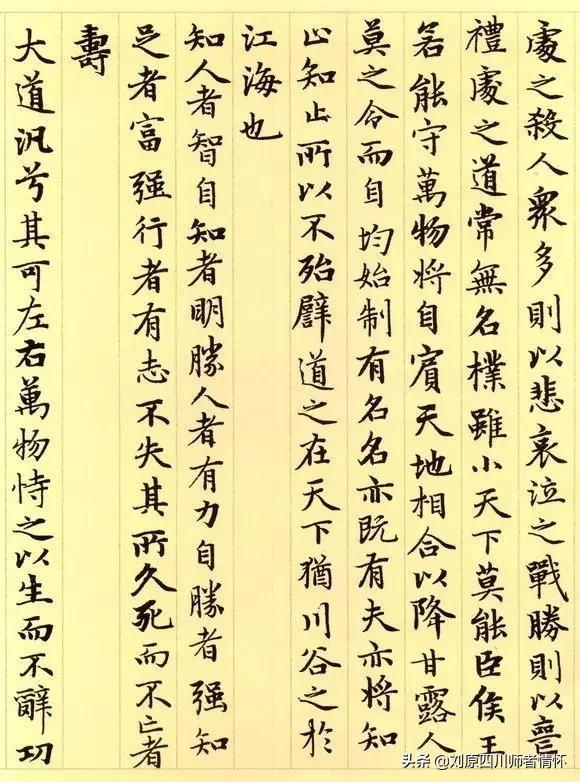 處之殺人衆多則以悲哀泣之戰勝則以喪
禮處之道常無名樸雖小天下莫能臣侯王
若能守萬物將自賓天地相合以降甘露人
莫之令而自均始制有名名亦既有夫亦將知
止知止所以不殆譬道之在天下猶川谷之於
江海也
知人者智自知者明勝人者有力自勝者强知
足者富强行者有志不失其所久死而不亡者
壽
大道汎兮其可左右萬物恃之以生而不辭功
头条 @刘原四川师者情怀